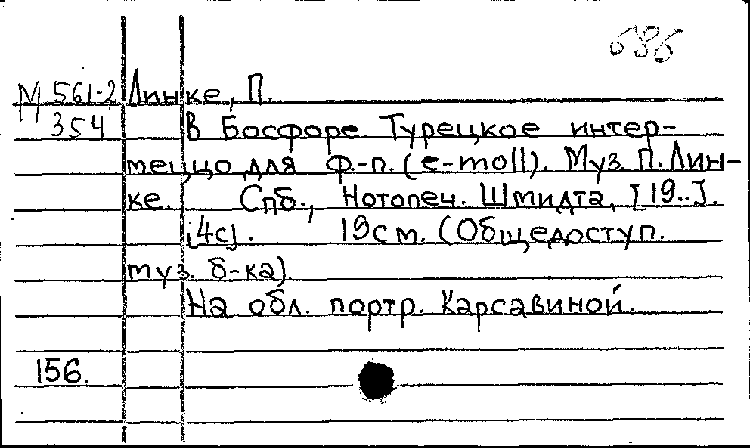 686
М 561-2 Линке, П.
354 В Босфоре. Турецкое интер-
меццо для ф-п. (e-moll). Муз. П. Лин-
ке. Спб., Нотопеч. Шмидта, [19..].
[4с]. 19см. (Общедоступ.
муз. б-ка)
На обл. портр. Карсавиной.
156.